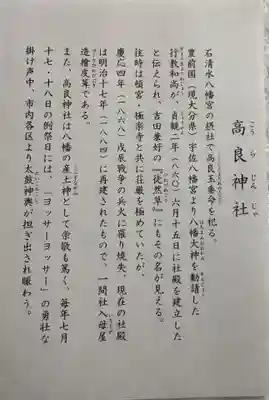 高良神社
こうらじんじゃ
石清水八幡宮の摂社で高良玉垂命を祀る。
豊前国(現大分県)宇佐八幡宮より八幡大神を勧請した
行教和尚が、貞観二年(八六〇)六月十五日に社殿を建立した
と伝えられ、吉田兼好の『徒然草』にもその名が見える。
往時は頓宮・極楽寺と共に荘厳を極めていたが、
慶応四年(一八六八)戊辰戦争の兵火に罹り焼失、現在の社殿
は明治十七年(一八八四)に再建されたもので、一間社入母屋
造檜皮葺である。
また、高良神社は八幡の産土神として崇敬も篤く、毎年七月
十七・十八日の例祭日には、「ヨッサーヨッサー」の勇壮な
掛け声中、市内各区より太鼓神輿が担ぎ出され賑わう。